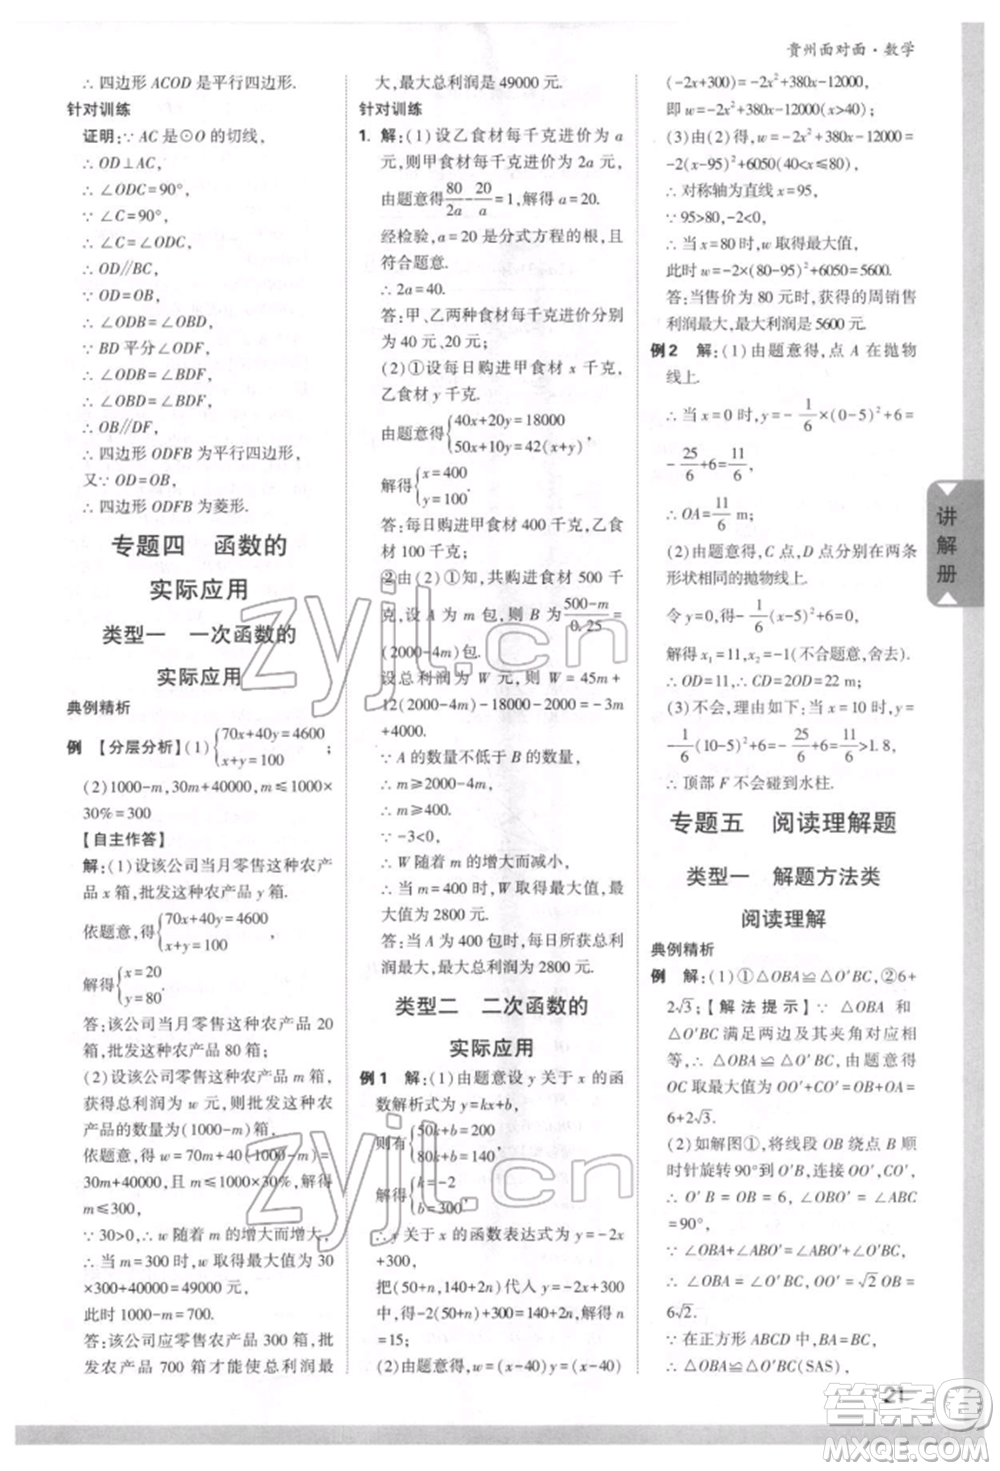 贵州面对面·数学
∴四边形ACOD是平行四边形.
针对训练
证明:∵AC是⊙O的切线,
∴OD⊥AC,
∴∠ODC=90°,
∵∠C=90°,
∴∠C=∠ODC,
∴OD//BC,
∵OD=OB,
∴∠ODB=∠OBD,
∵BD平分∠ODF,
∴∠ODB=∠BDF,
∴∠OBD=∠BDF,
∴OB//DF,
∴四边形ODFB为平行四边形,
又∵OD=OB,
∴四边形ODFB为菱形.
专题四 函数的
实际应用
类型一 一次函数的
实际应用
典例精析
例 【分层分析】(1){70x+40y=4600
x+y=100
(2)1000-m,30m+40000,m≤1000×
30%=300
【自主作答】
解:(1)设该公司当月零售这种农产
品x箱,批发这种农产品y箱.
依题意,得{70x+40y=4600
x+y=100,
解得{x=20
y=80.
答:该公司当月零售这种农产品20
箱,批发这种农产品80箱;
(2)设该公司零售这种农产品m箱,
获得总利润w元,则批发这种农产品
的数量为(1000-m)箱,
依题意,得w=70m+40(1000-m)=
30m+40000,且m≤1000×30%,解得
m≤300,
∵30>0,∴w随着m的增大而增大,
∴当m=300时,w取得最大值为30
×300+40000=49000元.
此时1000-m=700.
答:该公司应零售农产品300箱,批
发农产品700箱才能使总利润最
大,最大总利润是49000元.
针对训练
1. 解:(1)设乙食材每千克进价为a
元,则甲食材每千克进价为2a元,
由题意得80/2a-20/a=1,解得a=20.
经检验,a=20是分式方程的根,且
符合题意.
∴2a=40.
答:甲、乙两种食材每千克进价分别
为40元、20元;
(2)①设每日购进甲食材x千克,
乙食材y千克.
由题意得{40x+20y=18000
50x+10y=42(x+y),
解得{x=400
y=100
答:每日购进甲食材400千克,乙食
材100千克;
②由(2)①知,共购进食材500千
克,设A为m包,则B为(500-m)/0.25
=(2000-4m)包.
设总利润为W元,则W=45m+
12(2000-4m)-18000-2000=-3m
+4000.
∵A的数量不低于B的数量,
∴m≥2000-4m,
∴m≥400.
∵-3<0,
∴W随着m的增大而减小,
∴当m=400时,W取得最大值,最大
值为2800元.
答:当A为400包时,每日所获总利
润最大,最大总利润为2800元.
类型二 二次函数的
实际应用
例1 解:(1)由题意设y关于x的函
数解析式为y=kx+b,
则有{50k+b=200
80k+b=140,
解得{k=-2
b=300,
∴y关于x的函数表达式为y=-2x
+300,
把(50+n,140+2n)代入y=-2x+300
得-2(50+n)+300=140+2n,解得n
=15;
(2)由题意得,w=(x-40)y=(x-40)
(-2x+300)=-2x²+380x-12000,
即w=-2x²+380x-12000(x>40);
(3)由(2)得,w=-2x²+380x-12000=
-2(x-95)²+6050(40<x≤80),
∴对称轴为直线x=95,
∵95>80,-2<0,
∴当x=80时,w取得最大值,
此时w=-2×(80-95)²+6050=5600.
答:当售价为80元时获得的周销售
利润最大,最大利润是5600元.
例2 解:(1)由题意得,点A在抛物
线上.
∴当x=0时,y=-1/6×(0-5)²+6=
-25/6+6=11/6,
∴OA=11/6 m;
(2)由题意得,C点,D点分别在两条
形状相同的抛物线上.
令y=0,得-1/6(x-5)²+6=0,
解得x₁=11,x₂=-1(不合题意,舍去).
∴OD=11,∴CD=2OD=22 m;
(3)不会,理由如下:当x=10时,y=
-1/6(10-5)²+6=-25/6+6=11/6>1.8,
∴顶部F不会碰到水柱.
专题五 阅读理解题
类型一 解题方法类
阅读理解
典例精析
例 解:(1)①△OBA≌△O′BC,②6+
2√3;【解法提示】∵△OBA和
△O′BC满足两边及其夹角对应相
等,∴△OBA≌△O′BC,由题意得
OC最大值为OO′+CO′=OO′+OA=
6+2√3.
(2)如解图①,将线段OB绕点B顺
时针旋转90°到O′B,连接OO′,CO′,
∴O′B=OB=6,∠OBO′=∠ABC
=90°,
∵∠OBA+∠ABO′=∠O′BC+∠ABO′,
∴∠OBA=∠O′BC,OO′=√2OB=
6√2.
∵在正方形ABCD中,BA=BC,
∴△OBA≌△O′BC(SAS),
讲解册
21
zyjl.cn
zyjl.cn
答案圈
MXQE.COM